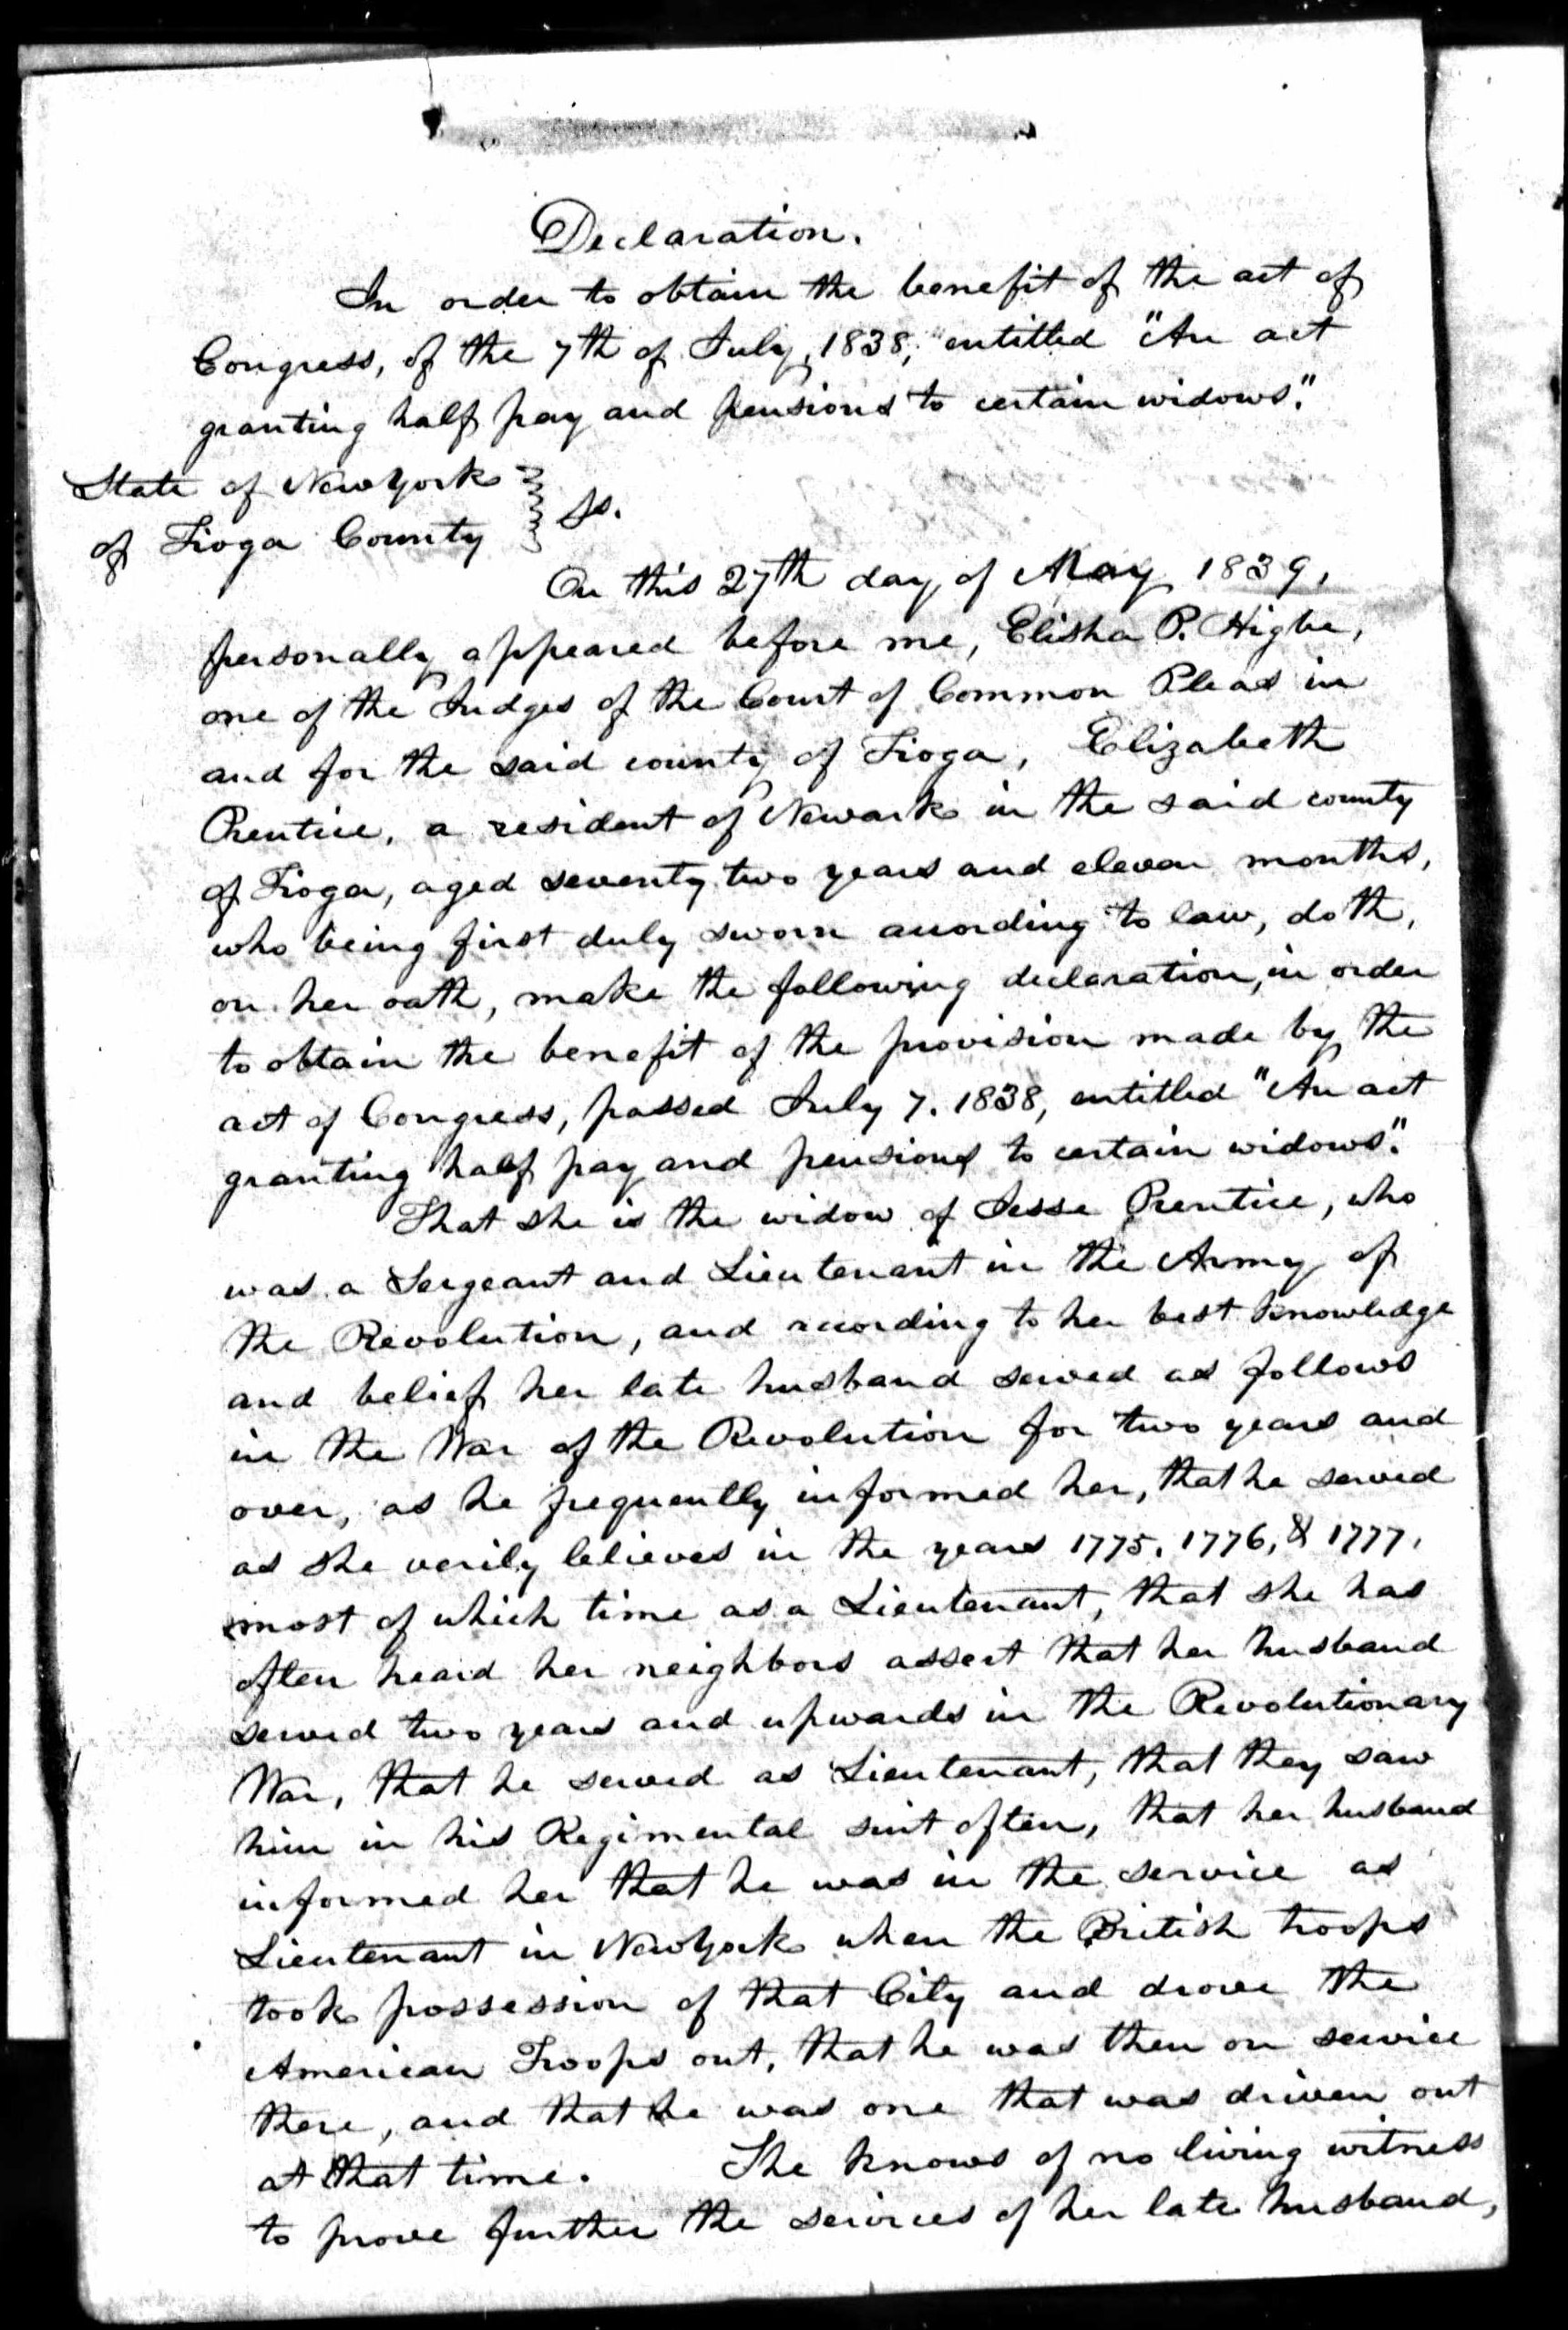 Declaration.
In order to obtain the benefit of the act of
Congress, of the 7th of July, 1838, entitled "An act
granting half pay and pensions to certain widows."
State of New York
of Tioga County } ss.
On this 27th day of May 1839,
personally appeared before me, Elisha P. Higbe,
one of the Judges of the Court of Common Pleas in
and for the said county of Tioga, Elizabeth
Prentice, a resident of Newark in the said county
of Tioga, aged seventy two years and eleven months,
who being first duly sworn according to law, doth,
on her oath, make the following declaration, in order
to obtain the benefit of the provision made by the
act of Congress, passed July 7. 1838, entitled "An act
granting half pay and pensions to certain widows".
That she is the widow of Jesse Prentice, who
was a Sergeant and Lieutenant in the Army of
the Revolution, and according to her best knowledge
and belief her late husband served as follows
in the War of the Revolution for two years and
over, as he frequently informed her, that he served
as she verily believes in the years 1775, 1776, & 1777,
most of which time as a Lieutenant, that she has
often heard her neighbors assert that her husband
served two years and upwards in the Revolutionary
War, that he served as Lieutenant, that they saw
him in his Regimental suit often, that her husband
informed her that he was in the service as
Lieutenant in New York when the British troops
took possession of that City and drove the
American Troops out, that he was then on service
there, and that he was one that was driven out
at that time. She knows of no living witness
to prove further the services of her late husband,